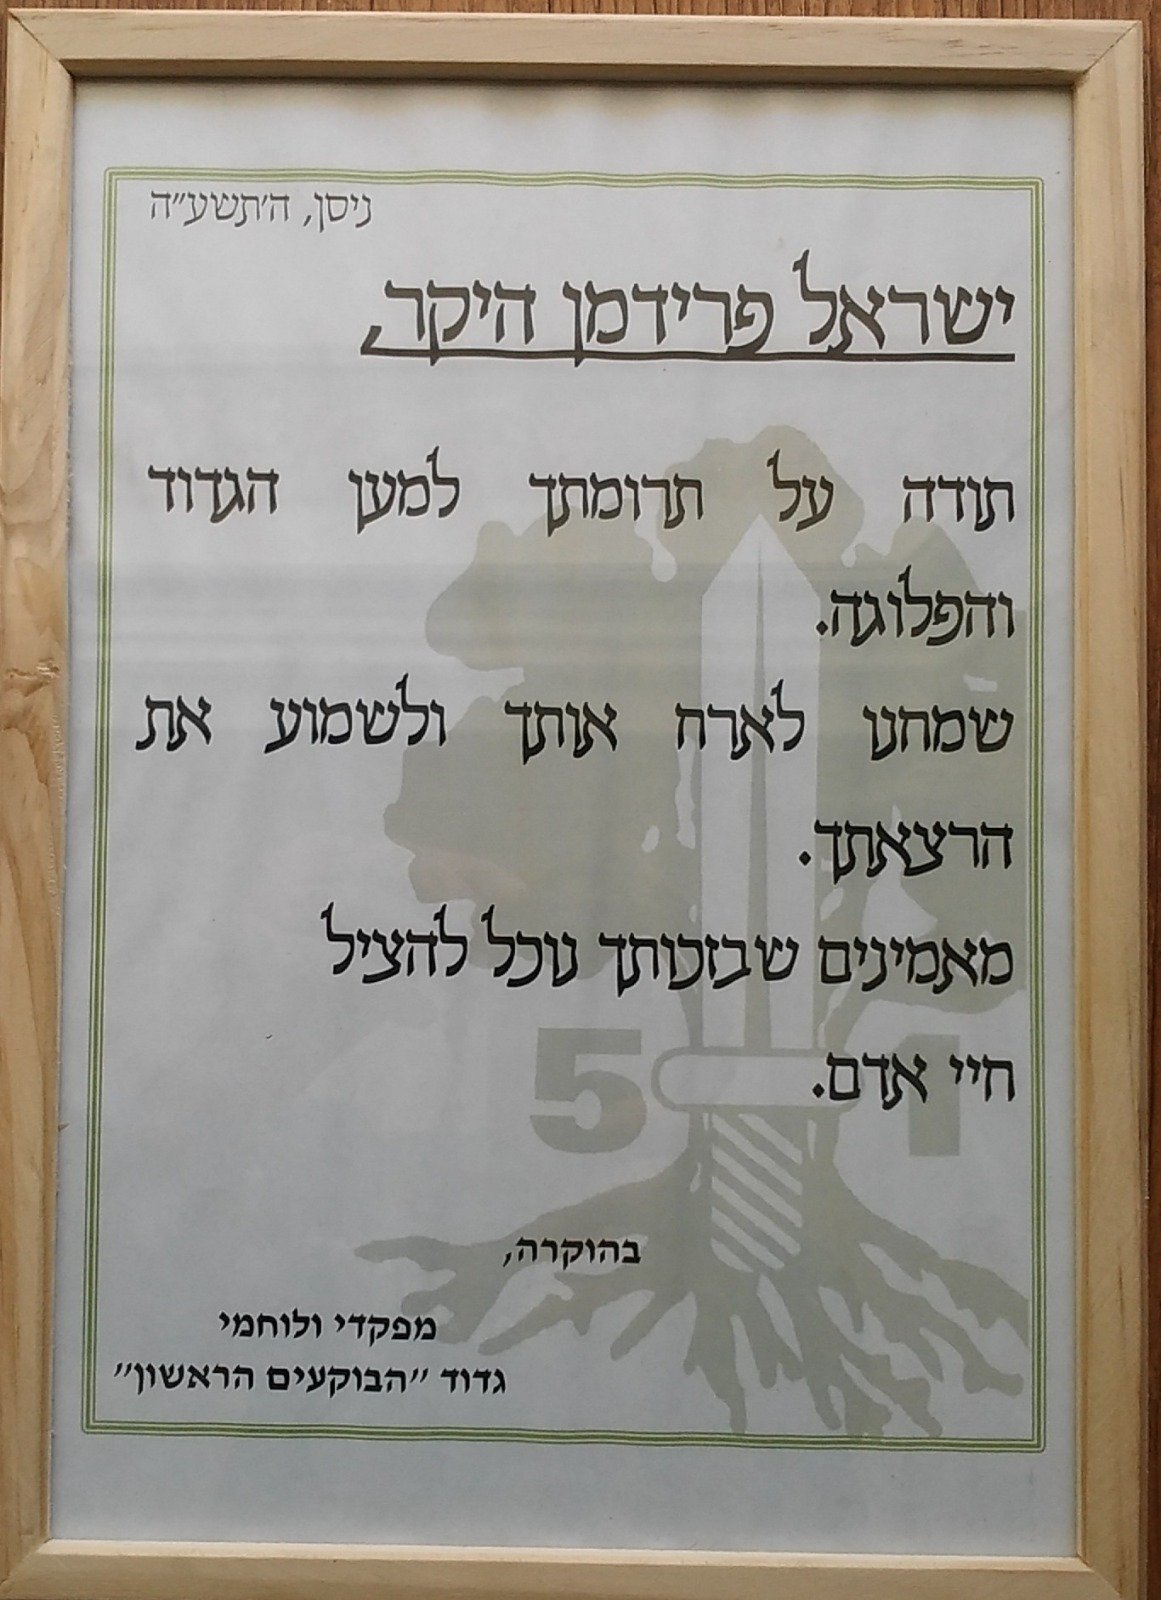 ניסן, ה'תשע"ה
ישראל פרידמן היקר,
תודה על תרומתך למען הגדוד
והפלוגה.
שמחנו לארח אותך ולשמוע את
הרצאתך.
מאמינים שבזכותך נוכל להציל
חיי אדם.
51
בהוקרה,
מפקדי ולוחמי
גדוד "הבוקעים הראשון"